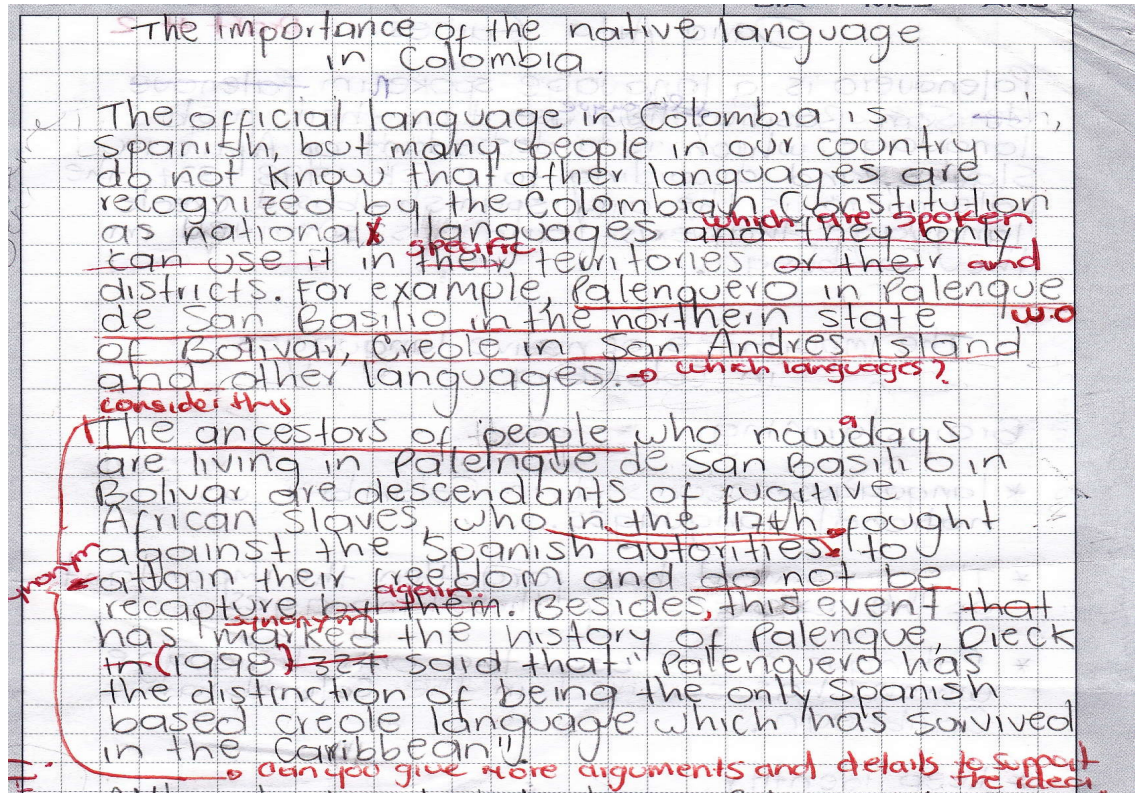 The importance of the native language
in Colombia
The official language in Colombia is
Spanish, but many people in our country
do not know that other languages are
recognized by the Colombian Constitution
which are spoken
as nationals languages and they only
specific
can use it in their territories or their and
districts. For example, Palenquero in Palenque
de San Basilio in the northern state w.o
of Bolivar, Creole in San Andres Island
and other languages. which languages?
consider this
The ancestors of people who nowdays
a
are living in Palenque de San Basilio in
Bolivar are descendants of fugitive
African slaves, who in the 17th fought
against the Spanish autorities to
synonym
attain their freedom and do not be
again.
recapture by them. Besides, this event that
synonym
has marked the history of Palenque, Dieck
in (1998) 324 said that "Palenquero has
the distinction of being the only Spanish
based creole language which has survived
in the Caribbean".
can you give more arguments and details to support
the idea.